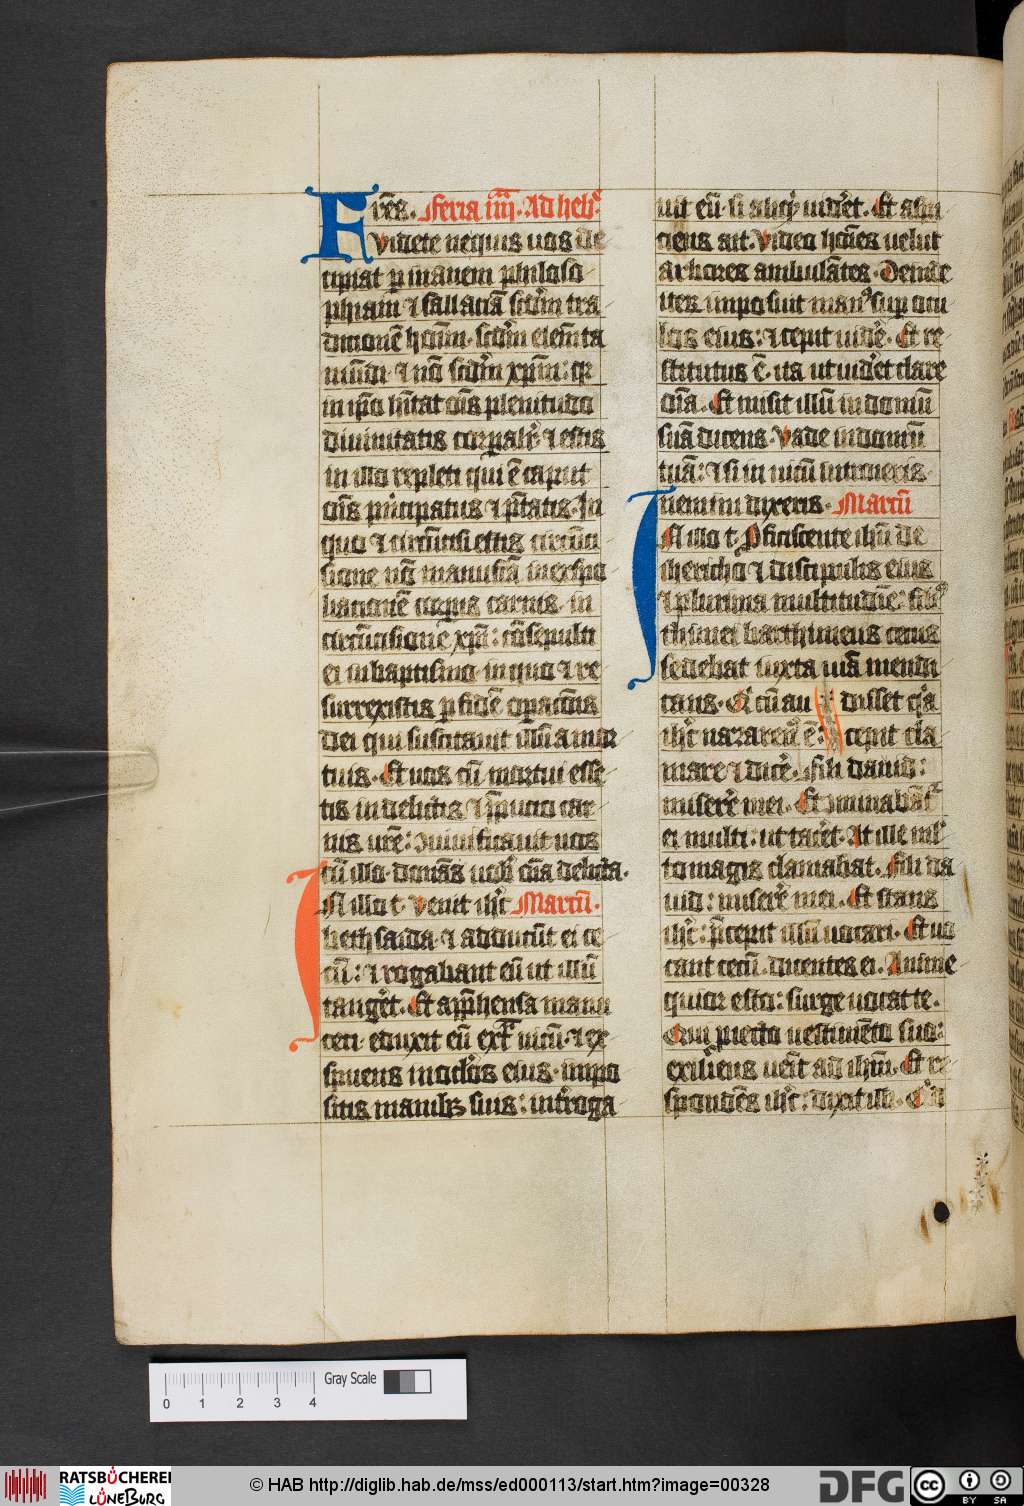 Fres. Feria iiii. Ad hebr.
Videte nequis uos de
cipiat p inanem philoso
phiam ⁊ fallaciā scdm tra
dicionē hoīm. scdm elemēta
mundi. ⁊ nō scdm xpm: qr
in ipo hītat oīs plenitudo
diuinitatis corpalit. ⁊ estis
in illo repleti qui ē caput
oīs pncipatus ⁊ ptatis. In
quo ⁊ circūcisi estis circūci
sione nō manufcā in expo
liacionē corpis carnis. in
circūcisione xpi: cōsepulti
ei in baptismo. in quo ⁊ re
surrexistis p fidē opacōnis
dei qui suscitauit illū a mor
tuis. Et uos cū mortui esse
tis in delictis ⁊ ppucio car
nis vre: 9uiuificauit uos
cū illo. donās uob oīa delicta.
IN illo t. Venit ihc Marcū.
bethsaida. ⁊ adducūt ei ce
cū: ⁊ rogabant eū ut illū
tangret. Et apphensa manu
ceci. eduxit eū ext uicū. ⁊ ex
spuens in oclos eius. impo
sitis manib3 suis: introga
uit eū. si aliqd uidret. Et aspi
ciens ait. Video hoīes uelut
arbores ambulātes. Deinde
iter imposuit man9 sup ocu
los eius: ⁊ cepit uidre. Et re
stitutus ē. ita ut uidret clare
oīa. Et misit illū in domū
suā dicens. Vade in domū
tuā: ⁊ si in uicū introieris.
nemini dixeris. Marcū
IN illo t. Pficiscente ihū de
ihericho ⁊ discipulis eius
⁊ plurima multitudīe: fili9
thimei barthimeus cecus
sedebat iuxta uiā mendi
cans. Qi cū au disset qa
ihc nazaren9 ē: cepit cla
mare ⁊ dicē. Fili dauid:
miserē mei. Et 9minabāt
ei multi: ut tacret. At ille ml
to magis clamabat. Fili da
uid: miserē mei. Et stans
ihc: pcepit illū uocari. Et uo
cant cecū. dicentes ei. Anime
quior esto: surge uocat te.
Qui piecto uestimēto suo:
exiliens uenit ad ihm. Et re
spondēs ihc: dixit illi. Qid
Gray Scale
0 1 2 3 4
RATSBÜCHEREI
LÜNEBURG
© HAB http://diglib.hab.de/mss/ed000113/start.htm?image=00328
DFG
cc BY SA